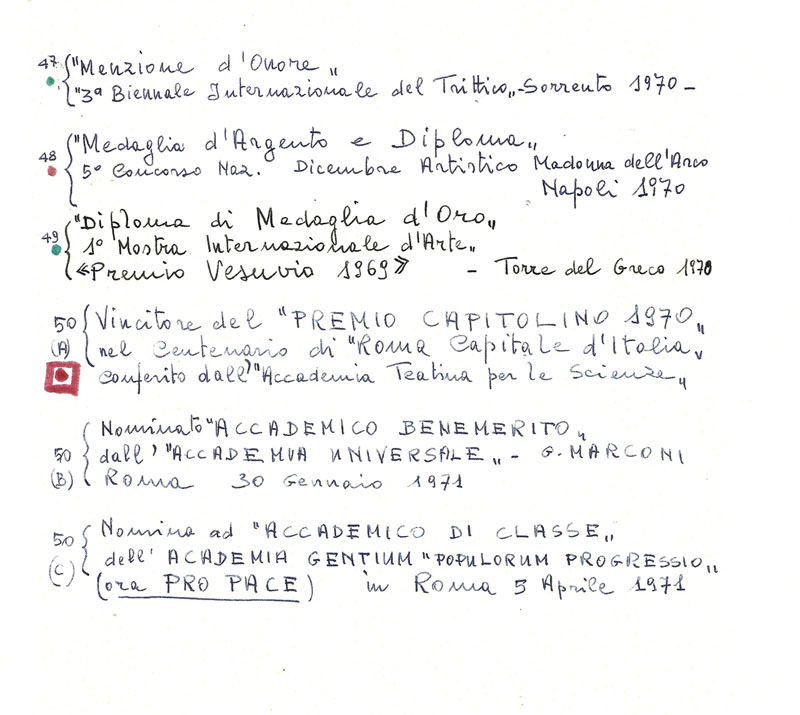 47 "Menzione d'Onore"
"3ª Biennale Internazionale del Trittico"-Sorrento 1970-
48 "Medaglia d'Argento e Diploma"
5° Concorso Naz. Dicembre Artistico Madonna dell'Arco
Napoli 1970
49 "Diploma di Medaglia d'Oro"
1° Mostra Internazionale d'Arte"
«Premio Vesuvio 1969» - Torre del Greco 1970
50 Vincitore del "PREMIO CAPITOLINO 1970"
(A) nel Centenario di "Roma Capitale d'Italia"
conferito dall'"Accademia Teatina per le Scienze"
Nominato "ACCADEMICO BENEMERITO"
50 dall'"ACCADEMIA UNIVERSALE" - G. MARCONI
(B) Roma 30 Gennaio 1971
50 Nomina ad "ACCADEMICO DI CLASSE"
(C) dell'ACADEMIA GENTIUM "POPULORUM PROGRESSIO"
(ora PRO PACE) in Roma 5 Aprile 1971